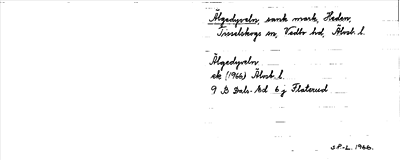 Älgedyveln, sank mark, Heden,
Tisselskogs sn, Vedbo hd, Älvsb. l.
Älgedyveln
ek (1966) Älvsb. l.
9 B Dals-Ed 6 j Flaterud
S.F.-L. 1966.